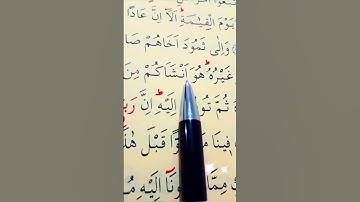 يَوْمَ الْقِيٰمَةِ ؕ اَلَاۤ اِنَّ عَادًا
وَاِلٰى ثَمُوْدَ اَخَاهُمْ صٰ
غَيْرُهٗ ؕ هُوَ اَنْشَاَكُمْ مِّنَ
ثُمَّ تُوْ اِلَيْهِ ؕ اِنَّ رَبِّ
فِيْنَا مَ وًّا قَبْلَ هٰذَ
مِّمَّا وْنَاۤ اِلَيْهِ مُ